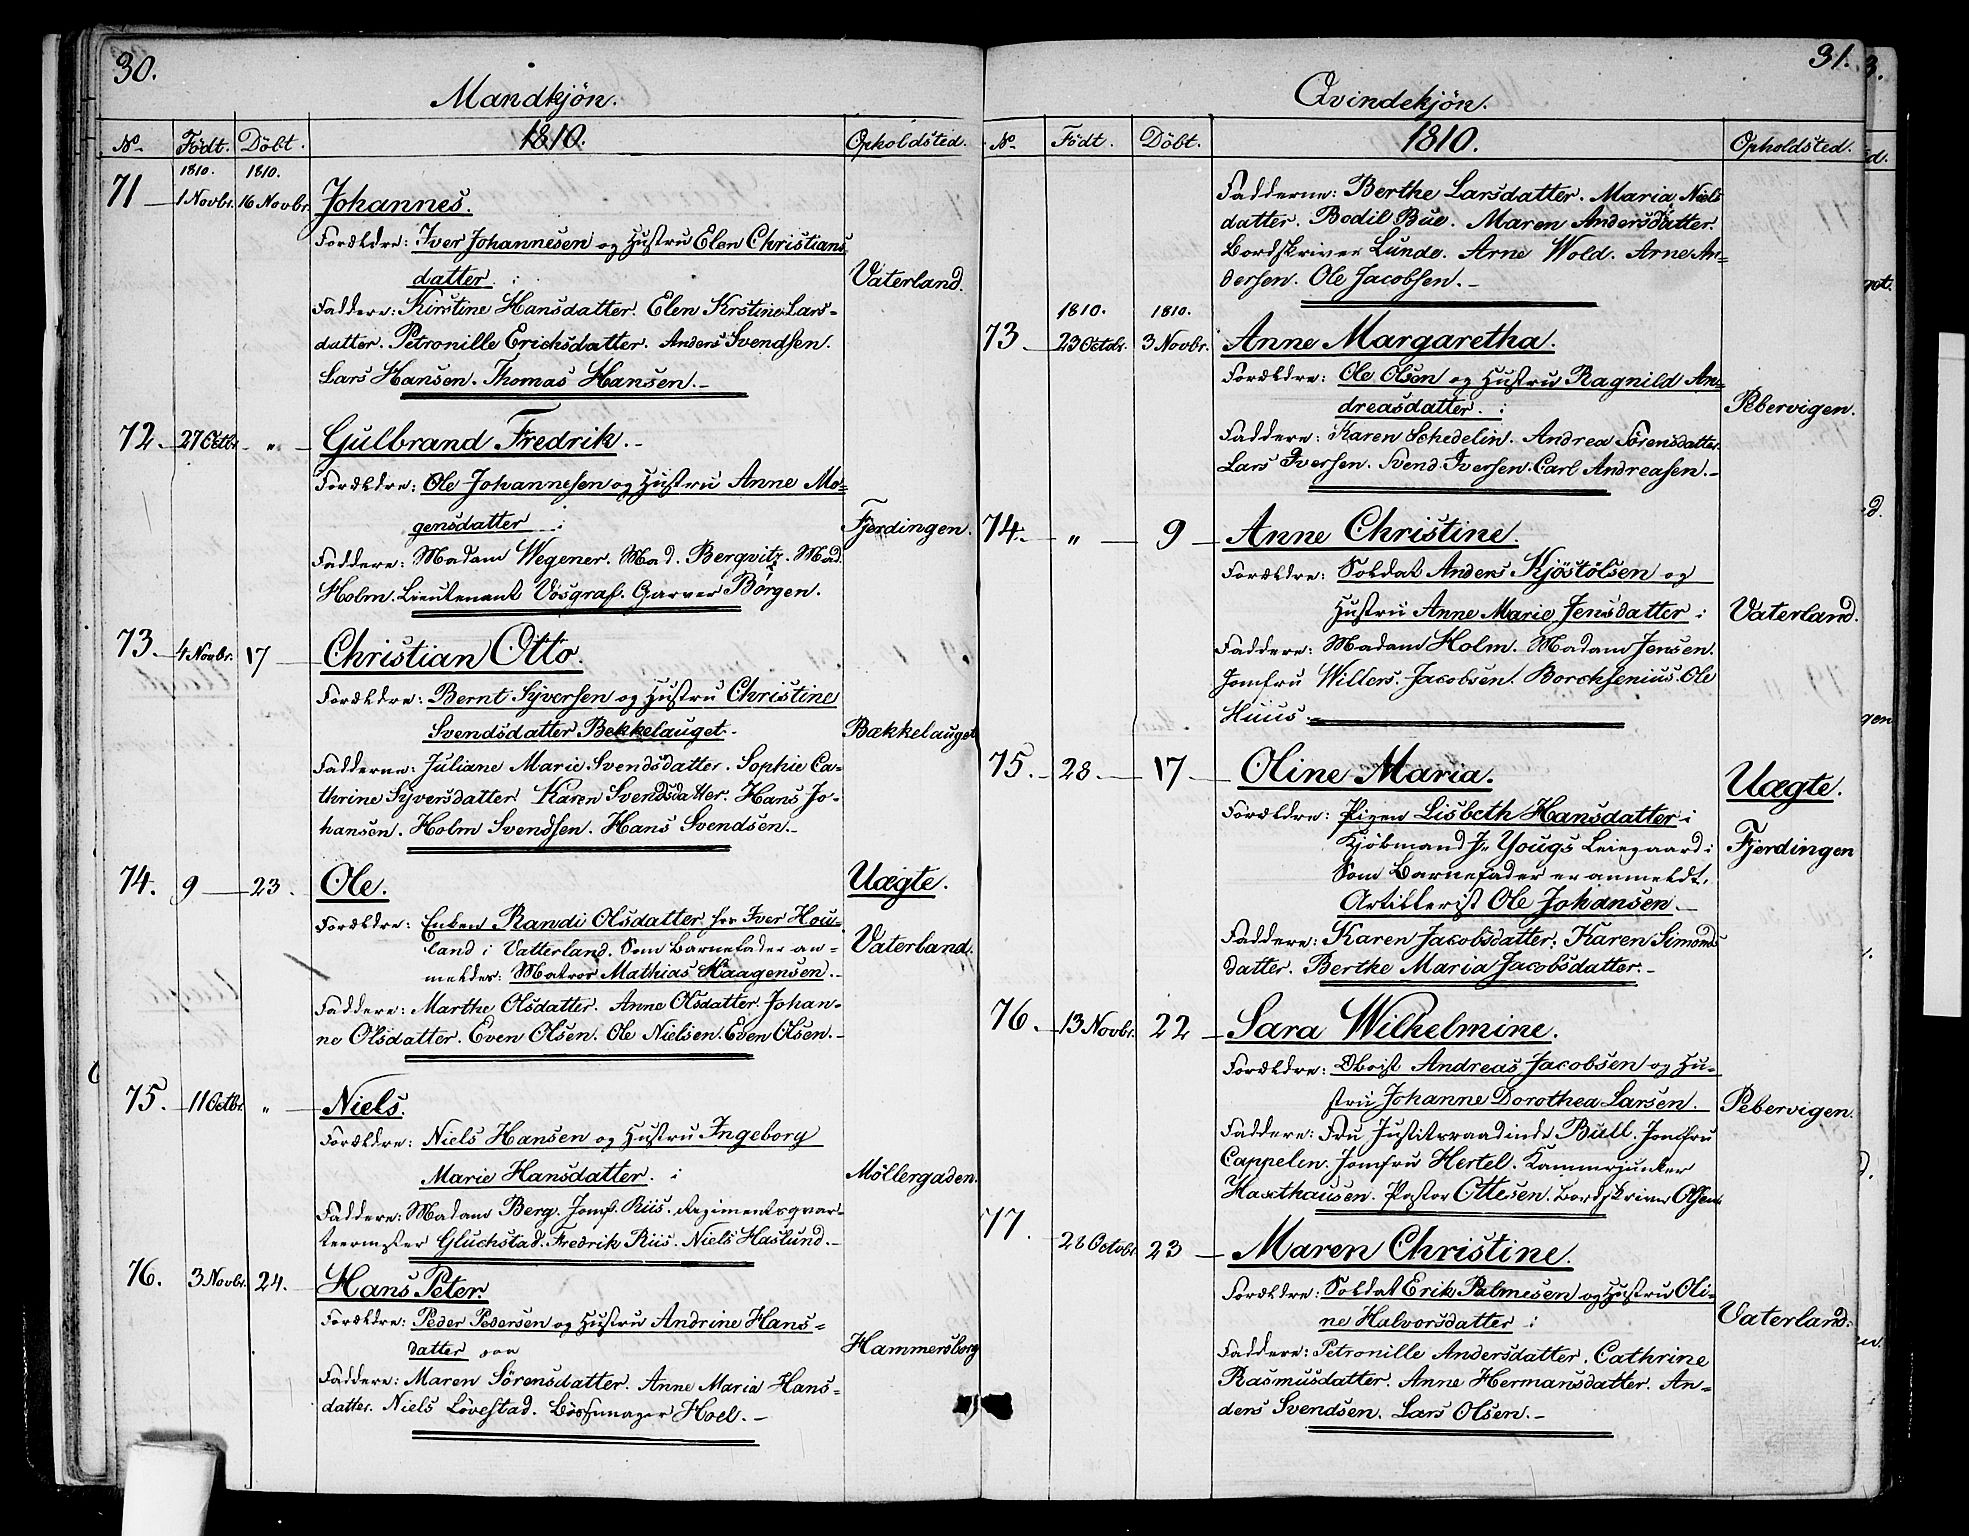 30.
Mandkjön.
No Födt. Döbt. 1810. Opholdsted.
1810. 1810.
71 1 Novbr. 16 Novbr. Johannes.
Forældre: Iver Johannesen og Hustru Elen Christians
datter. i Vaterland.
Faddere: Kirstine Hansdatter. Elen Kirstine Lars-
datter. Petronille Erichsdatter. Anders Svendsen.
Lars Hansen. Thomas Hansen.
72 27 Octbr. " Gulbrand Fredrik.
Forældre: Ole Johannesen og Hustru Anne Mo-
gensdatter i Fjerdingen.
Faddere: Madam Wegener. Mad. Bergvitz. Mad.
Holm. Lieutenant Vosgraf. Garver Börgen.
73 4 Novbr. 17 Christian Otto.
Forældre: Bernt Syversen og Hustru Christine
Svendsdatter Bekkelauget. Bækkelauget
Fadderne: Juliane Marie Svendsdatter. Sophie Ca-
thrine Syversdatter Karen Svendsdatter. Hans Jo-
hansen. Holm Svendsen. Hans Svendsen.
74. 9 23. Ole. Uægte.
Forældre: Enken Randi Olsdatter for Iver Hou-
land i Vatterland. Som Barnefader an- Vaterland.
melder: Matros Mathias Haagensen.
Faddere: Marthe Olsdatter. Anne Olsdatter. Johan-
ne Olsdatter. Even Olsen. Ole Nielsen. Even Olsen.
75. 11 Octbr. " Niels.
Forældre: Niels Hansen og Hustru Ingeborg
Marie Hansdatter. i Möllergaden.
Faddere: Madam Berg. Jomf. Riis. Regimentsqvar-
teermster Gluchstad. Fredrik Riis. Niels Haslund.
76. 3 Novbr. 24. Hans Peter.
Forældre: Peder Pedersen og Hustru Andrine Hans-
datter paa Hammersborg
Faddere: Maren Sörensdatter. Anne Maria Hans-
datter. Niels Lövestad. Bössemager Hoel.
31.
Qvindekjön.
No Födt. Döbt. 1810. Opholdsted.
Fadderne: Berthe Larsdatter. Maria Niels
datter. Bodil Bue. Maren Andersdatter.
Bordskriver Lunde. Arne Wold. Arne An-
dersen. Ole Jacobsen.
1810. 1810.
73 23 Octbr. 3 Novbr. Anne Margaretha.
Forældre: Ole Olsen og Hustru Ragnild An-
dreasdatter. i Pebervigen.
Faddere: Karen Schedelin. Andrea Sörensdatter
Lars Iversen. Svend Iversen. Carl Andreasen.
74. " 9 Anne Christine.
Forældre: Soldat Anders Kjöstölsen og
Hustru Anne Marie Jensdatter i Vaterland.
Faddere: Madam Holm. Madam Jensen.
Jomfru Willers. Jacobsen. Borchsenius. Ole
Huus.
75. 28 17 Oline Maria. Uægte.
Forældre: Pigen Lisbeth Hansdatter i
Kjöbmand Jr Yougs Leiegaard i Fjerdingen
Som Barnefader er anmeldt,
Artillerist Ole Johansen.
Faddere: Karen Jacobsdatter. Karen Simons
datter. Berthe Maria Jacobsdatter.
76. 13 Novbr. 22 Sara Wilhelmine.
Forældre: Oboist Andreas Jacobsen og Hu-
stru Johanne Dorothea Larsen. Pebervigen.
Faddere: Fru Justitsraadinde Bull. Jomfru
Cappelen. Jomfru Hertel. Kammerjunker
Haxthausen. Pastor Ottesen. Bordskriver Olsen
77. 28 Octobr. 23 Maren Christine.
Forældre: Soldat Erik Palmesen og Hustru Oli-
ne Halvorsdatter i Vaterland.
Faddere: Petronille Andersdatter. Cathrine
Rasmusdatter. Anne Hermansdatter. An-
ders Svendsen. Lars Olsen.